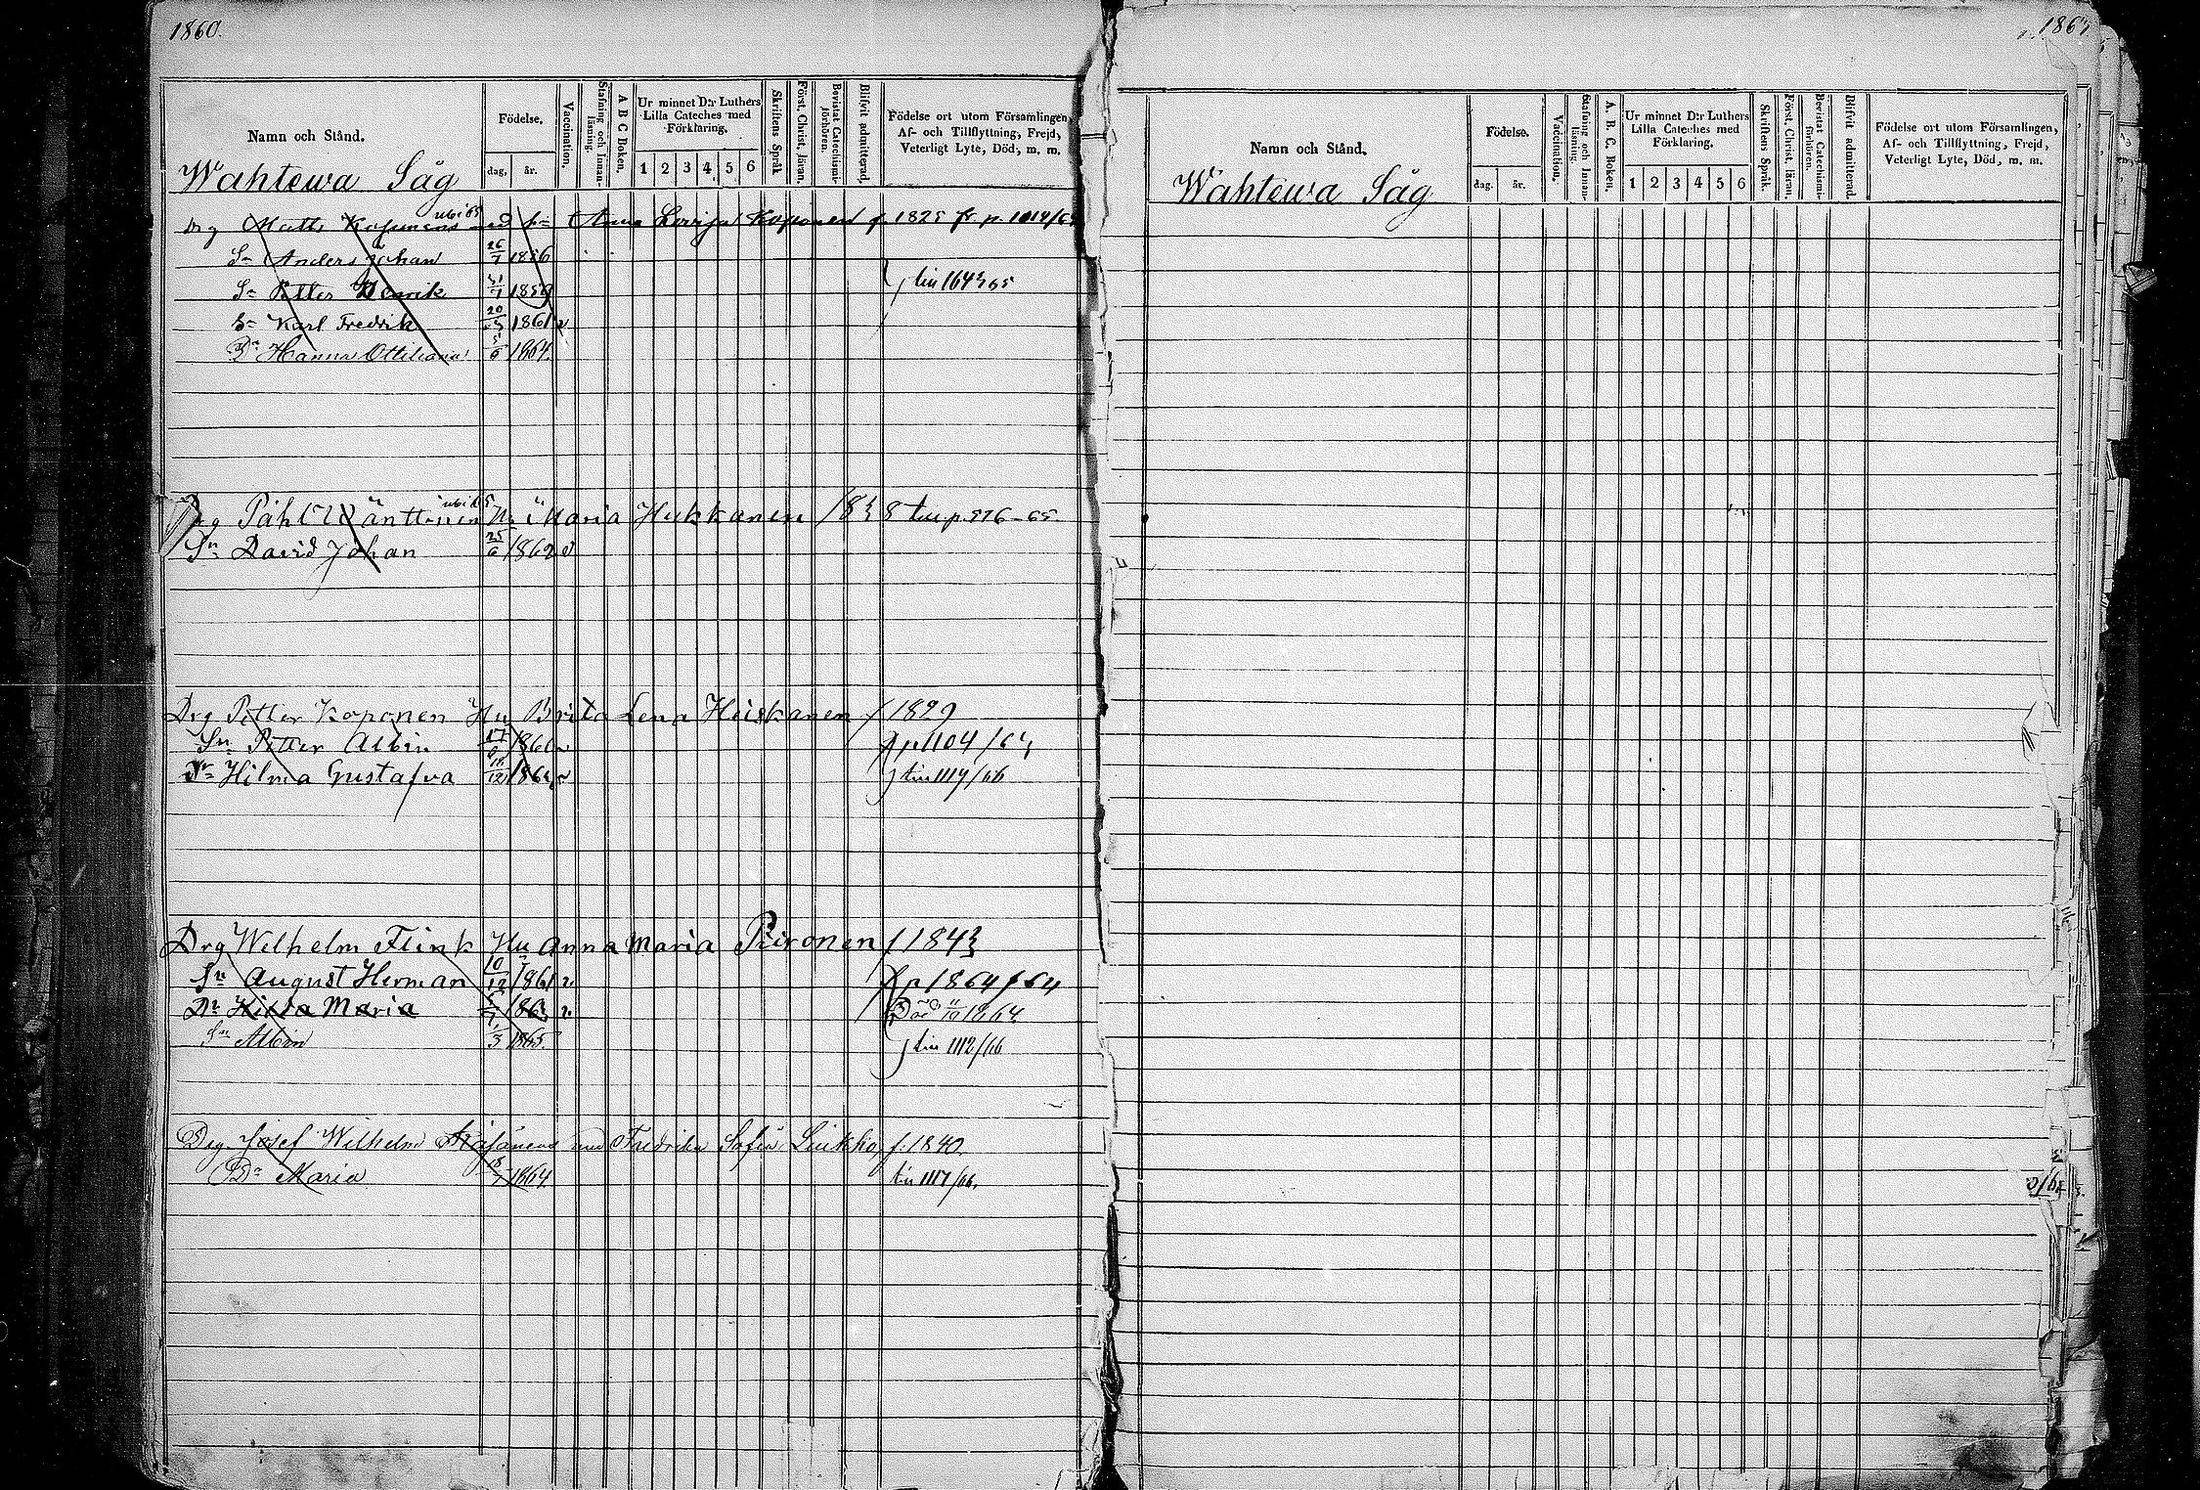 1860.
Namn och Stånd.
Födelse.
dag, år.
Vaccination.
Stafning och Innanläsning.
A B C Boken.
Ur minnet D:r Luthers Lilla Cateches med Förklaring.
1 2 3 4 5 6
Skriftens Språk
Först. Christ. läran.
Bevistat Catechismiförhören.
Blifvit admitterad.
Födelse ort utom Församlingen, Af- och Tillflyttning, Frejd, Veterligt Lyte, Död, m. m.
Wahtewa Såg
Drg Matts Koponens Anna Lovisa Koponen f. 1825 fr. p. 1014/63
Sn Anders Johan 26/7 1856
Sn Petter Henrik 1859 tin 1643 65
Sn Karl Fredrik 20 1861 v
Dr Hanna Ottiliana 5/6 1864.
Drg Påhl Wänttinen Hu Maria Hukkanen 1838 tin p. 576-65.
Sn David Johan 25/6 1862 v
Drg Petter Koponen Hu Brita Lena Heiskanen f 1829
Sn Petter Albin 17 1860 v fr p 1104/63
Dr Hilma Gustafva 18/12 186 v tin 1114/66
Drg Welhelm Flink Hu Anna Maria Piironen f 1843
Sn August Herman 10/12 1861 v fr p 1864 f 64
Dr Hilda Maria 1863 v. Död 11/10 1864
Sn Albin 1/3 1865. tin 1112/66
Drg Josef Wilhelm Fredrika Sofia Luikko, f. 1840.
Dr Maria 18/7 1864. tin 1117/66.
Namn och Stånd.
Födelse.
dag. år.
Vaccination.
Stafning och Innanläsning.
A. B. C. Boken.
Ur minnet D:r Luthers Lilla Cateches med Förklaring.
1 2 3 4 5 6
Skriftens Språk.
Först. Christ. läran.
Bevistat Catechismiförhören.
Blifvit admitterad.
Födelse ort utom Församlingen, Af- och Tillflyttning, Frejd, Veterligt Lyte, Död, m. m.
Wahtewa Såg